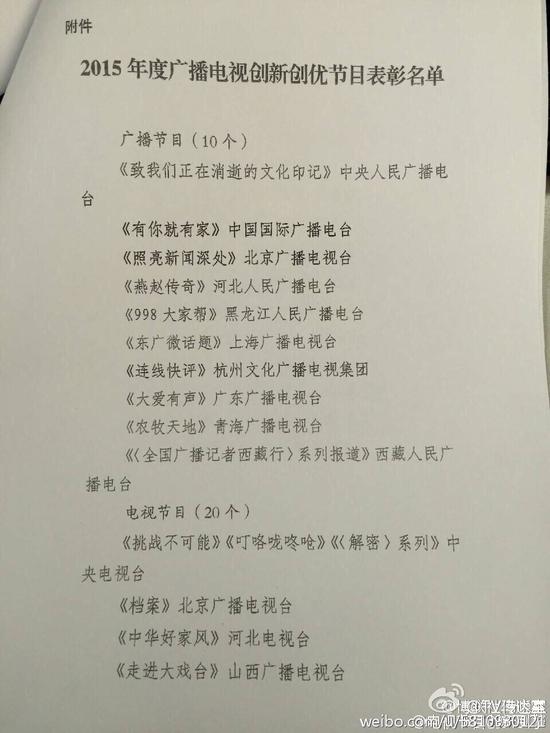 附件
2015年度广播电视创新创优节目表彰名单
广播节目（10个）
《致我们正在消逝的文化印记》中央人民广播电
台
《有你就有家》中国国际广播电台
《照亮新闻深处》北京广播电视台
《燕赵传奇》河北人民广播电台
《998大家帮》黑龙江人民广播电台
《东广微话题》上海广播电视台
《连线快评》杭州文化广播电视集团
《大爱有声》广东广播电视台
《农牧天地》青海广播电视台
《〈全国广播记者西藏行〉系列报道》西藏人民广
播电台
电视节目（20个）
《挑战不可能》《叮咯咙咚呛》《〈解密〉系列》中
央电视台
《档案》北京广播电视台
《中华好家风》河北电视台
《走进大戏台》山西广播电视台